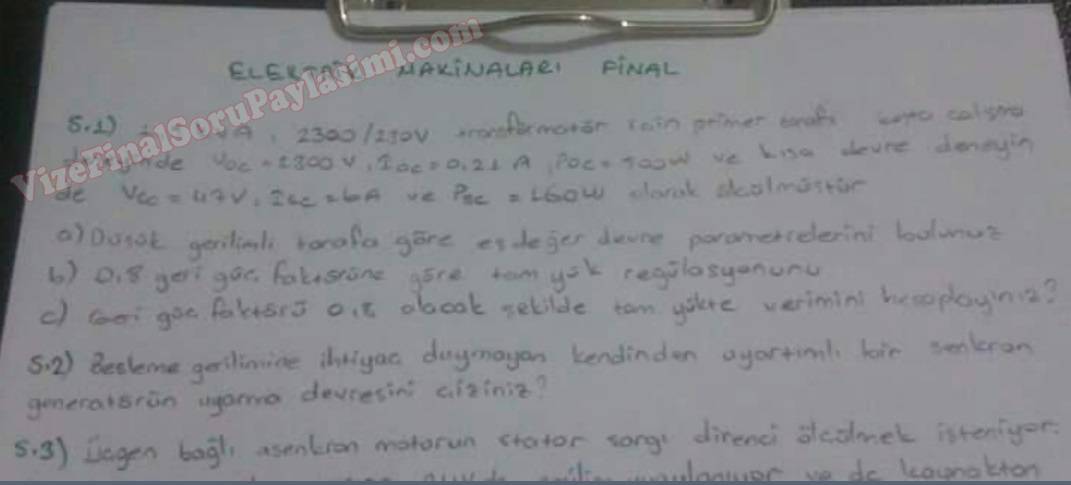 ELEKTRİK MAKİNALARI FİNAL
VizeFinalSoruPaylasimi.com
S.1) 2300/230V transformatör için primer tarafı çalışma
VOC = 2300 V, IOC = 0,21 A, POC = ve kısa devre deneyin
de = 47V, = 6A ve PSC = 160W olarak ölçülmüştür
a) Düşük gerilimli tarafa göre eşdeğer devre parametrelerini bulunuz
b) 0,8 geri güç faktörüne göre tam yük regülasyonunu
c) Geri güç faktörü 0,8 olacak şekilde tam yükte verimini hesaplayınız?
S.2) Besleme gerilimine ihtiyaç duymayan kendinden uyartımlı bir senkron
generatörün uyarma devresini çiziniz?
S.3) Üçgen bağlı asenkron motorun stator sargı direnci ölçülmek isteniyor.
uygulanıyor ve dc kaynaktan